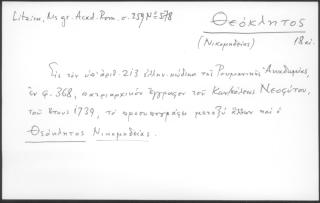 Litzica, Ms gr. Acad. Rom. σ. 259 Nº 578
Θεόκλητος
(Νικομηδείας) 18 αι.
Εἰς τὸν ὑπ' ἀριθ. 213 ἑλλην. κώδικα τῆς Ρουμανικῆς Ἀκαδημίας,
ἐν φ. 368, πατριαρχικὸν ἔγγραφον τοῦ Κων/πόλεως Νεοφύτου,
τοῦ ἔτους 1739, τὸ προσυπογράφει μεταξὺ ἄλλων καὶ ὁ
Θεόκλητος Νικομηδείας.